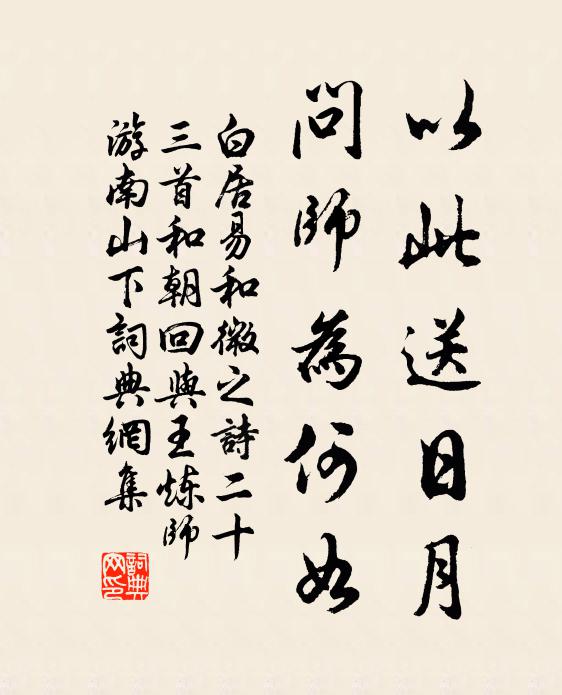 以此送日月
問師為何如
白居易和微之詩二十
三首和朝回與王炼師
游南山下詞典網集
詞典
网印